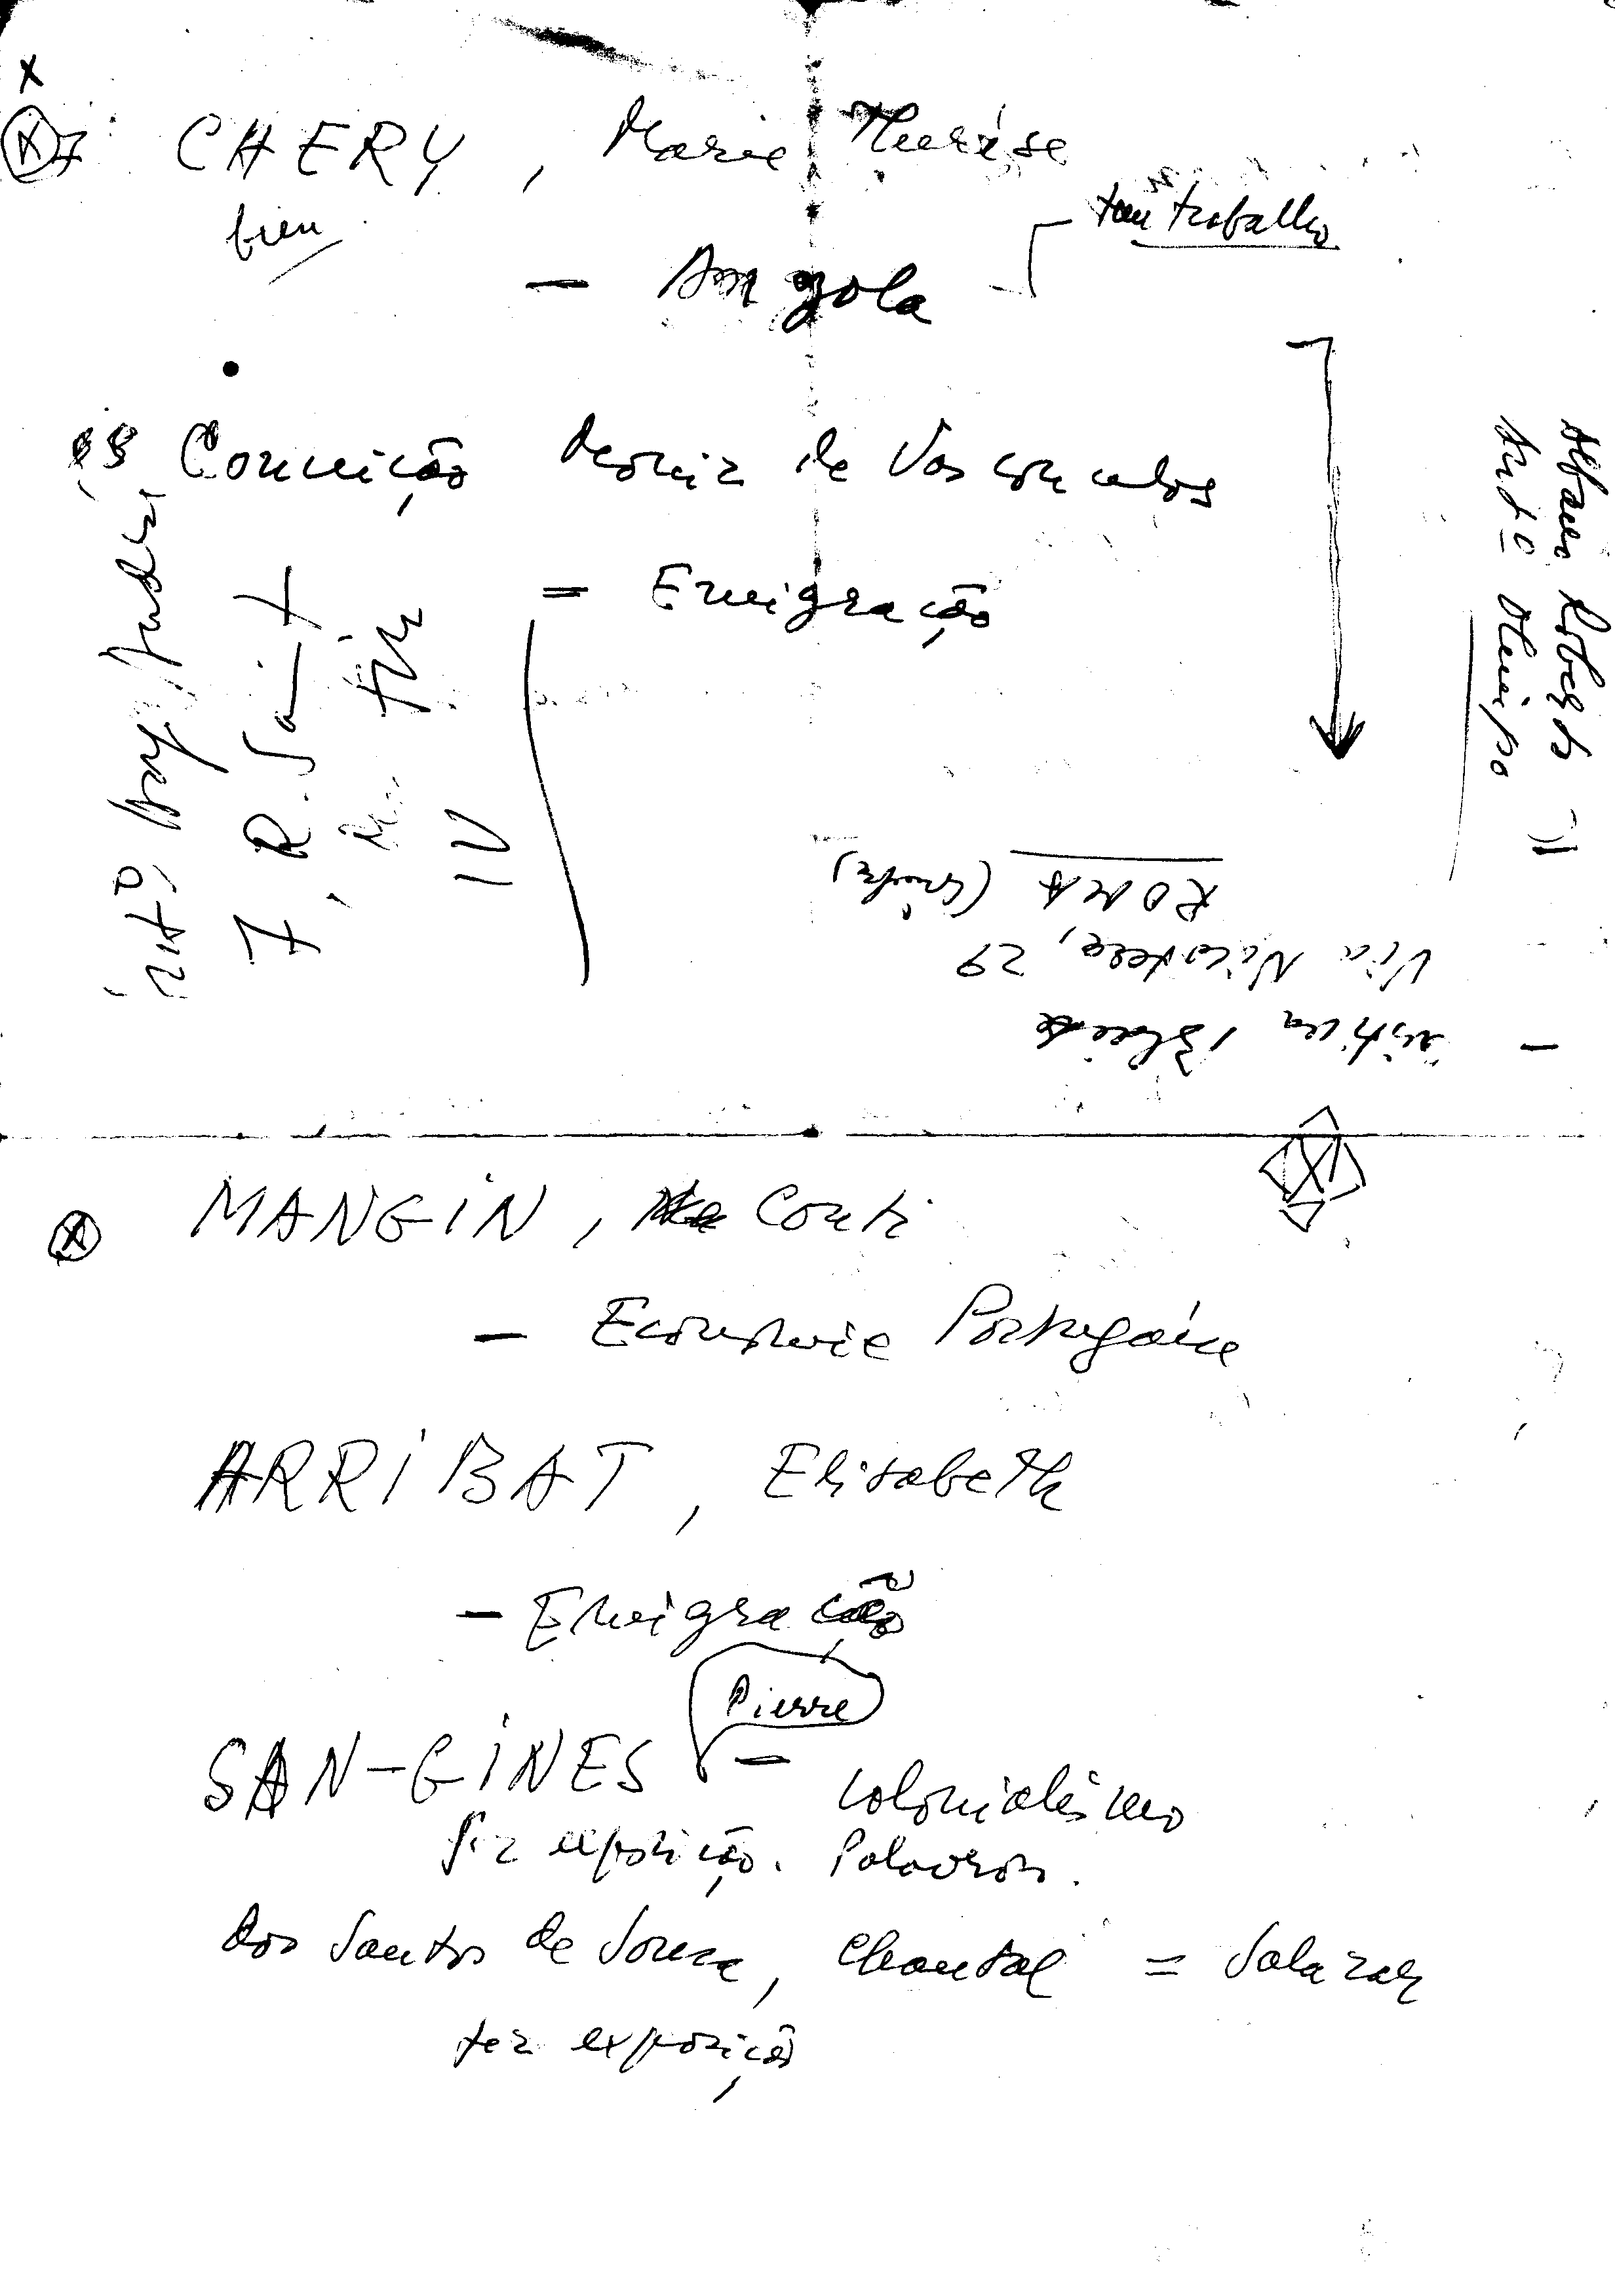 X
CHERY, Marie Thérèse
bien
tem trabalho
— Angola
Conceição Moniz de Vasconcelos
= Emigração
7, R. Saint
IV
Roberto
Olimpo
Via Nicotera, 29
ROMA
MANGIN, Conti
— Economie Portugaise
ARRIBAT, Elisabeth
— Emigração
Pierre
SAN-GINES — colonialismo
fez exposição. Palavras.
dos Santos de Sousa, Chantal = Salazar
fez exposição